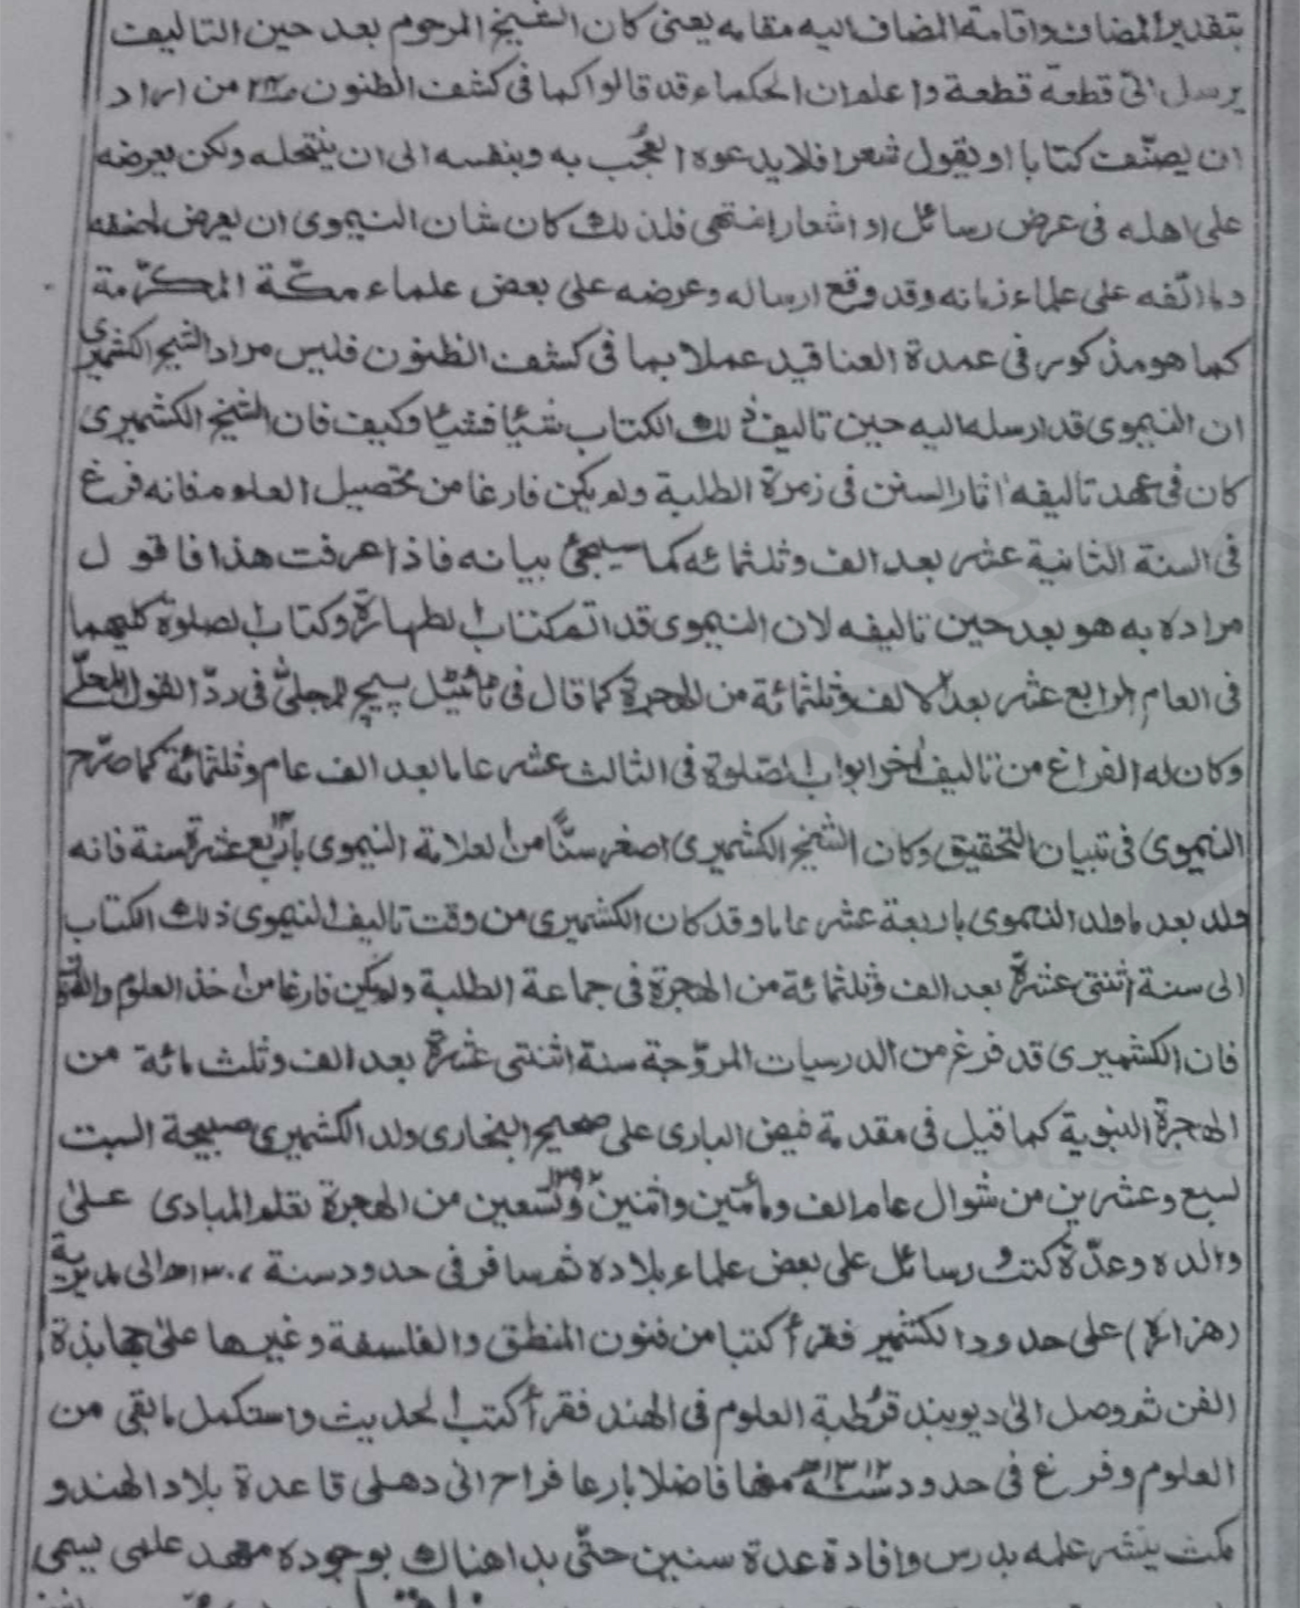 بتقدير المضاف واقامة المضاف اليه مقامه يعنى كان الشيخ المرحوم بعد حين التاليف
يرسل الىّ قطعة قطعة واعلم ان الحكماء قد قالوا كما فى كشف الظنون من اراد
ان يصنّف كتابا او يقول شعرا فلا يدعوه العُجب به وبنفسه الى ان ينتحله ولكن يعرضه
على اهله فى عرض رسائل او اشعار انتهى فلذلك كان شان النيموى ان يعرض
وما الّفه على علماء زمانه وقد وقع ارساله وعرضه على بعض علماء مكّة المكرّمة
كما هو مذكور فى عمدة العناقيد عملا بما فى كشف الظنون فليس مراد الشيخ الكشميرى
ان النيموى قد ارسله اليه حين تاليف ذلك الكتاب شيًا فشيًا وكيف فان الشيخ الكشميرى
كان فى عهد تاليفه اثار السنن فى زمرة الطلبة ولم يكن فارغا من تحصيل العلوم فانه فرغ
فى السنة الثانية عشر بعد الف وثلثمائه كما سيجئ بيانه فاذا عرفت هذا فاقول
مراده به هو بعد حين تاليفه لان النيموى قد اتم كتاب الطهارة وكتاب الصلوة كليهما
فى العام الرابع عشر بعد الالف وثلثمائة من الهجرة كما قال فى ٹائیٹل پیچ المجلّى فى ردّ القول المحلّے
وكان له الفراغ من تاليف اخر ابواب الصلوة فى الثالث عشر عاما بعد الف عام وثلثمائة كما صرّح
النيموى فى تبيان التحقيق وكان الشيخ الكشميرى اصغر سنًّا من العلامة النيموى باربع عشرة سنة فانه
ولد بعد ما ولد النيموى باربعة عشر عاما وقد كان الكشميرى من وقت تاليف النيموى ذلك الكتاب
الى سنة اثنتى عشرة بعد الف وثلثمائة من الهجرة فى جماعة الطلبة ولم يكن فارغا من اخذ العلوم
فان الكشميرى قد فرغ من الدرسيات المروّجة سنة اثنتى عشرة بعد الف وثلث مائة من
الهجرة النبوية كما قيل فى مقدمة فيض البارى على صحيح البخارى ولد الكشميرى صبيحة السبت
لسبع وعشرين من شوال عام الف ومأتين واثنين وتسعين ١٢٩٢ من الهجرة تعلم المبادى علىٰ
والده وعدّة كتب ورسائل على بعض علماء بلاده ثم سافر فى حدود سنة ١٣٠٧ھ الى مديرية
(هزاره) على حدود الكشمير فقرأ كتبا من فنون المنطق والفلسفة وغيرها علىٰ جهابذة
الفن ثم وصل الىٰ ديوبند قرُطبة العلوم فى الهند فقرأ كتب الحديث واستكمل ما بقى من
العلوم وفرغ فى حدود سنة ١٣١٢ھ منها فاضلا بارعا فراح الى دهلى قاعدة بلاد الهند و
مكث ينشر علمه بدرس وافادة عدة سنين حتّى بدا هناك بوجوده معهد علمى يسمى